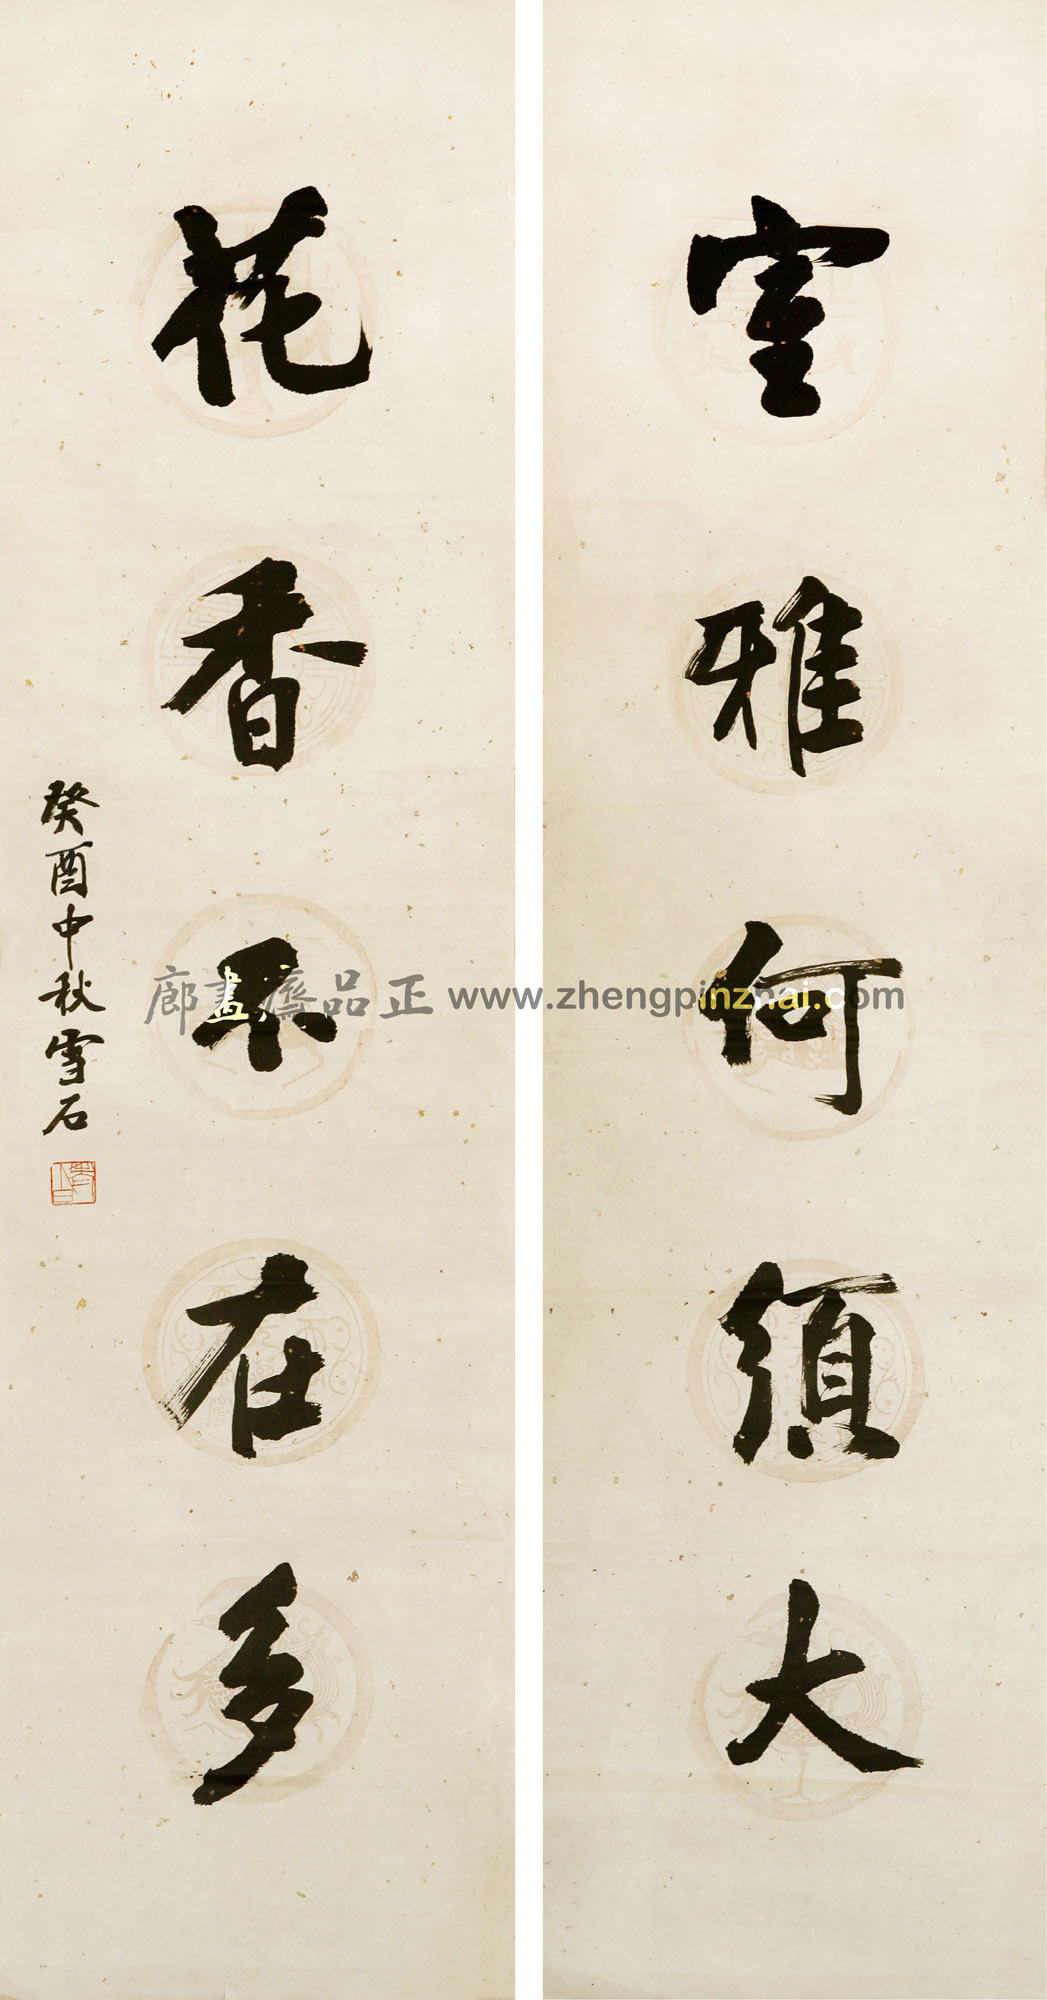 室雅何須大
花香不在多
癸酉中秋雪石
廊畫齋品正 www.zhengpinzhai.com